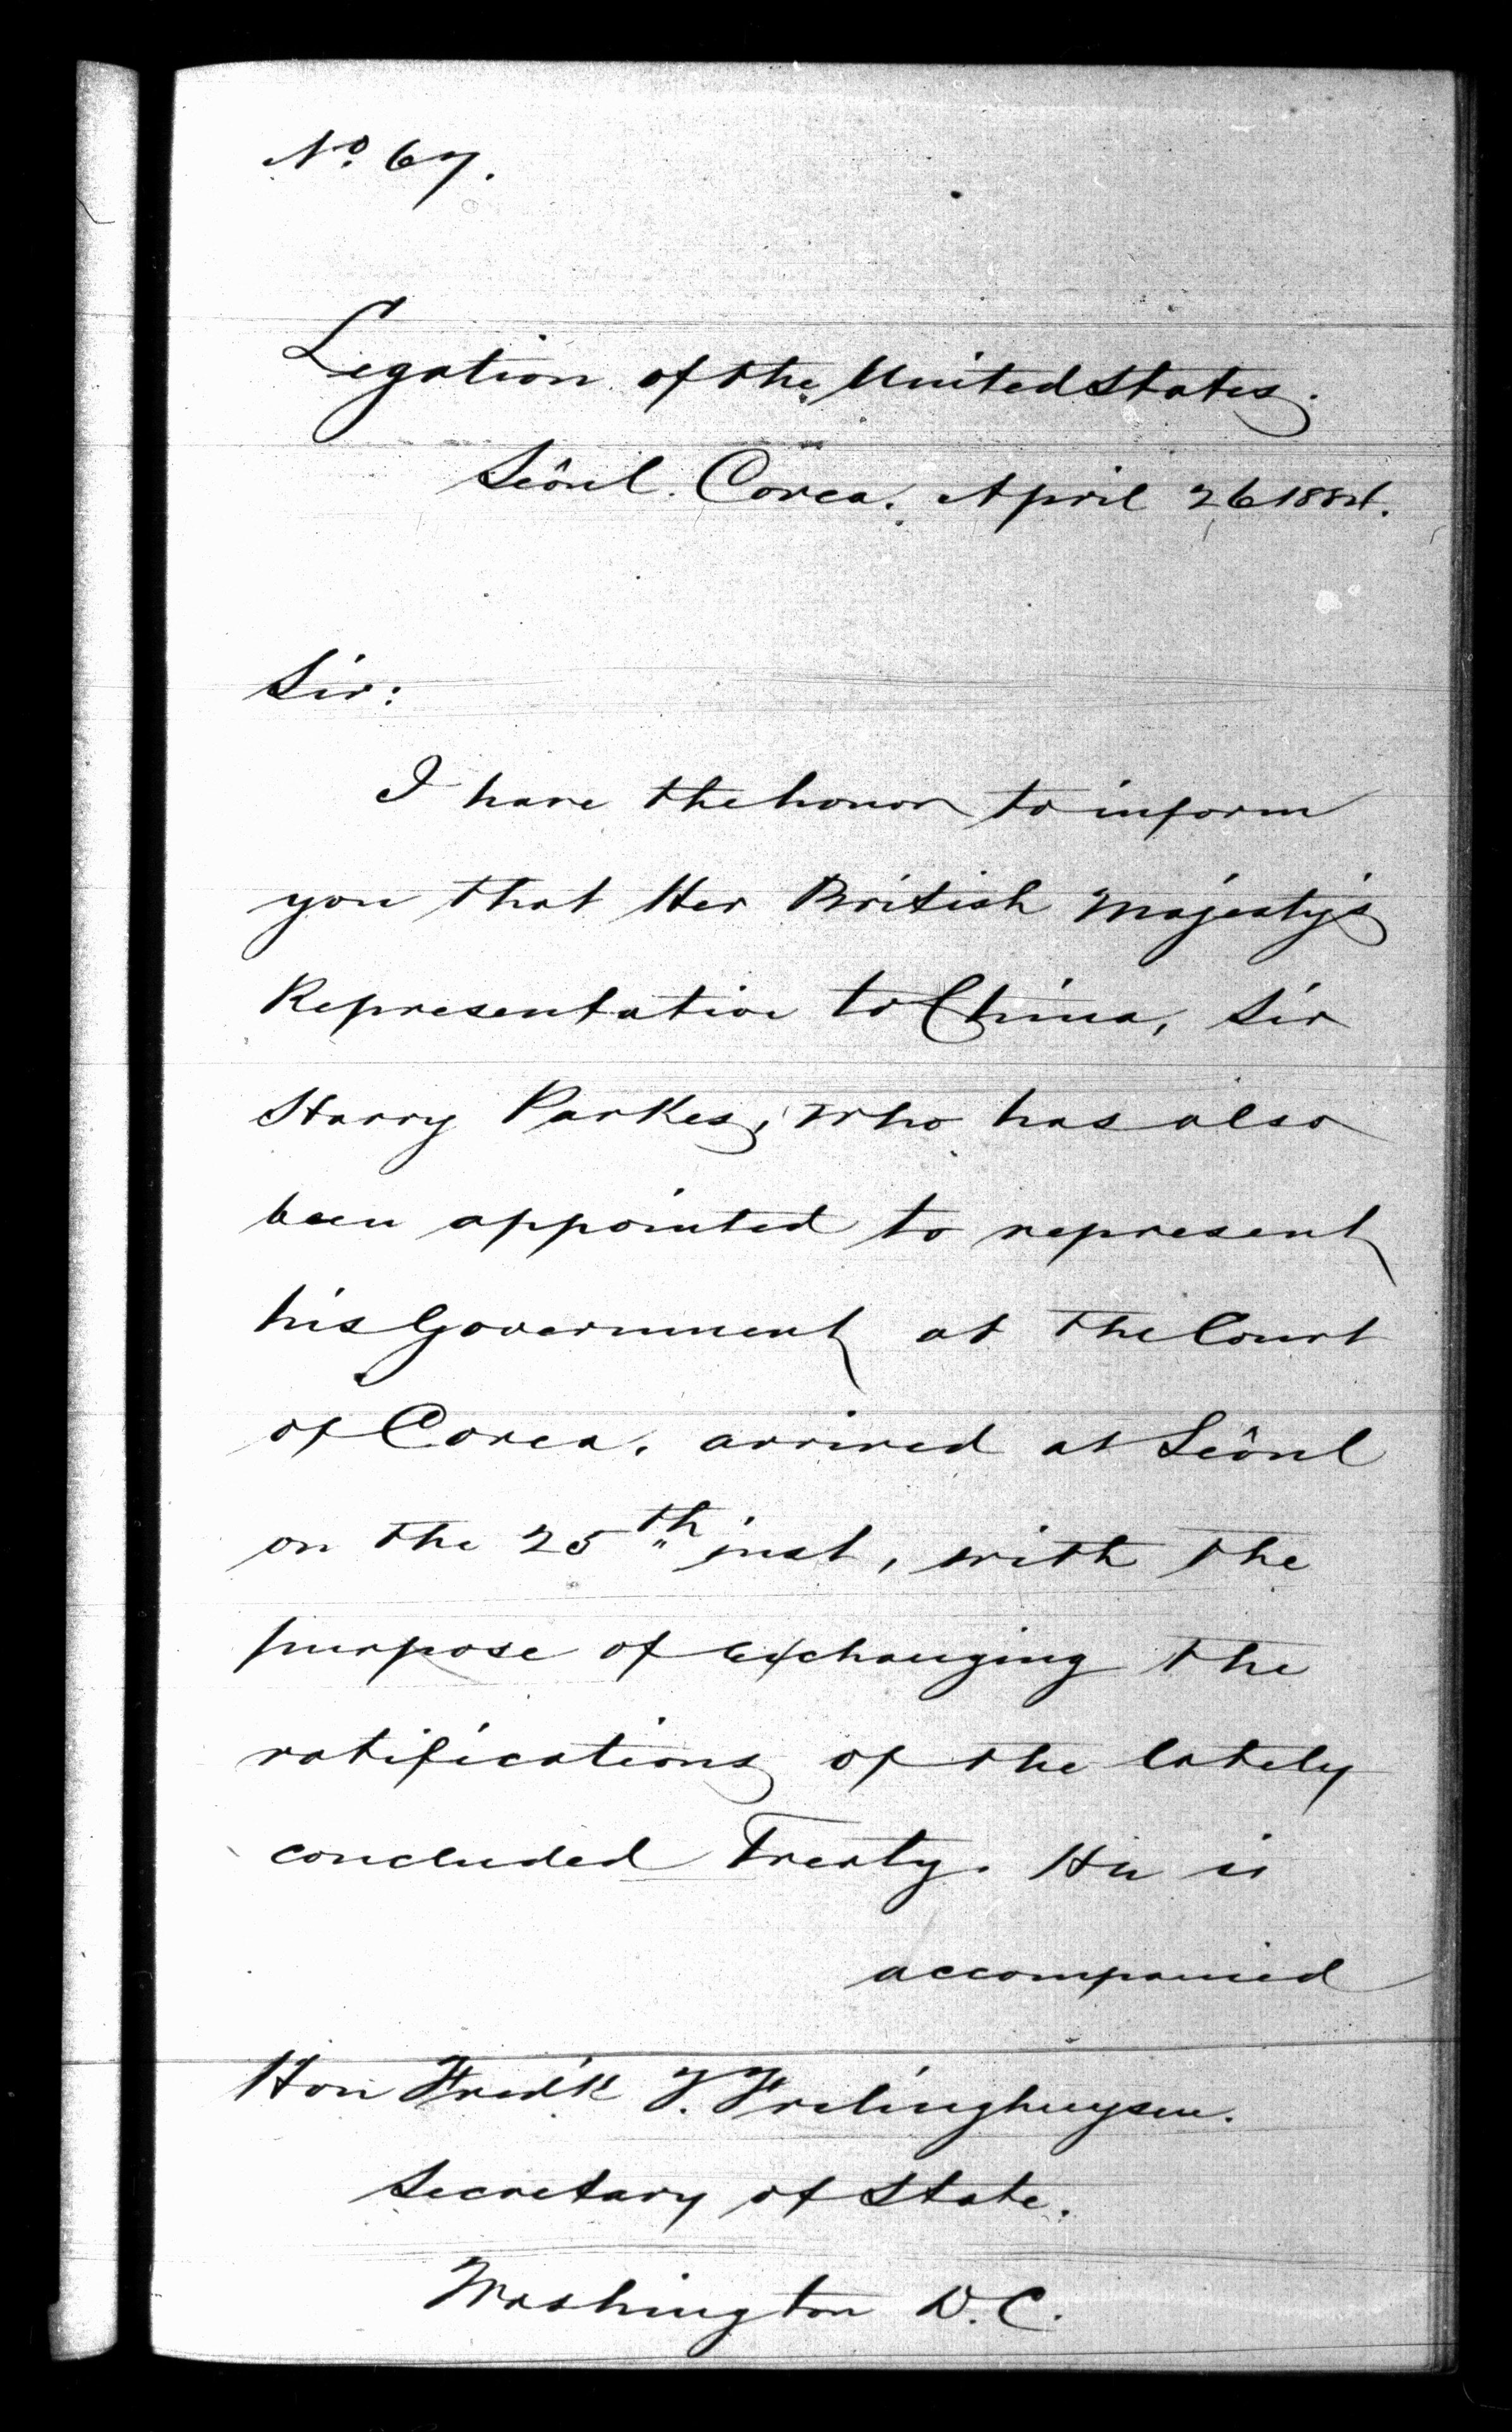 Nº 67.
Legation of the United States.
Seôul. Corea. April 26 1884.
Sir:
I have the honor to inform
you that Her British Majesty's
Representative to China, Sir
Harry Parkes, who has also
been appointed to represent
his Government at the Court
of Corea. arrived at Seôul
on the 25th inst, with the
purpose of exchanging the
ratifications of the lately
concluded Treaty. He is
accompanied
Hon Fred'k T. Frelinghuysen.
Secretary of State.
Washington D.C.